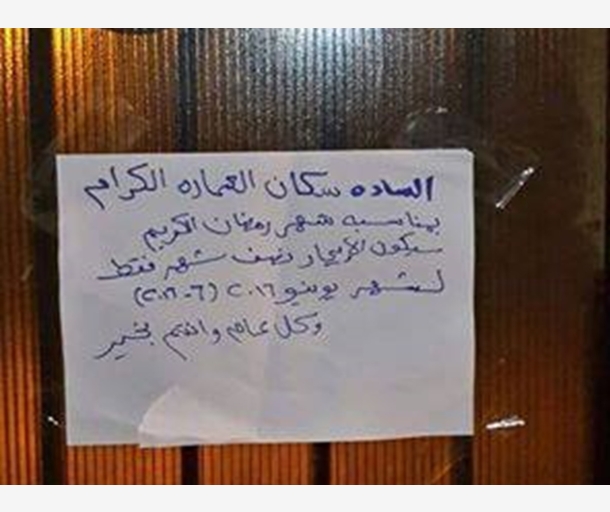 الساده سكان العماره الكرام
بمناسبه شهر رمضان الكريم
سيكون الإيجار نصف شهر فقط
لشهر يونيو ٢٠١٦ (٦-٢٠١٦)
وكل عام وانتم بخير